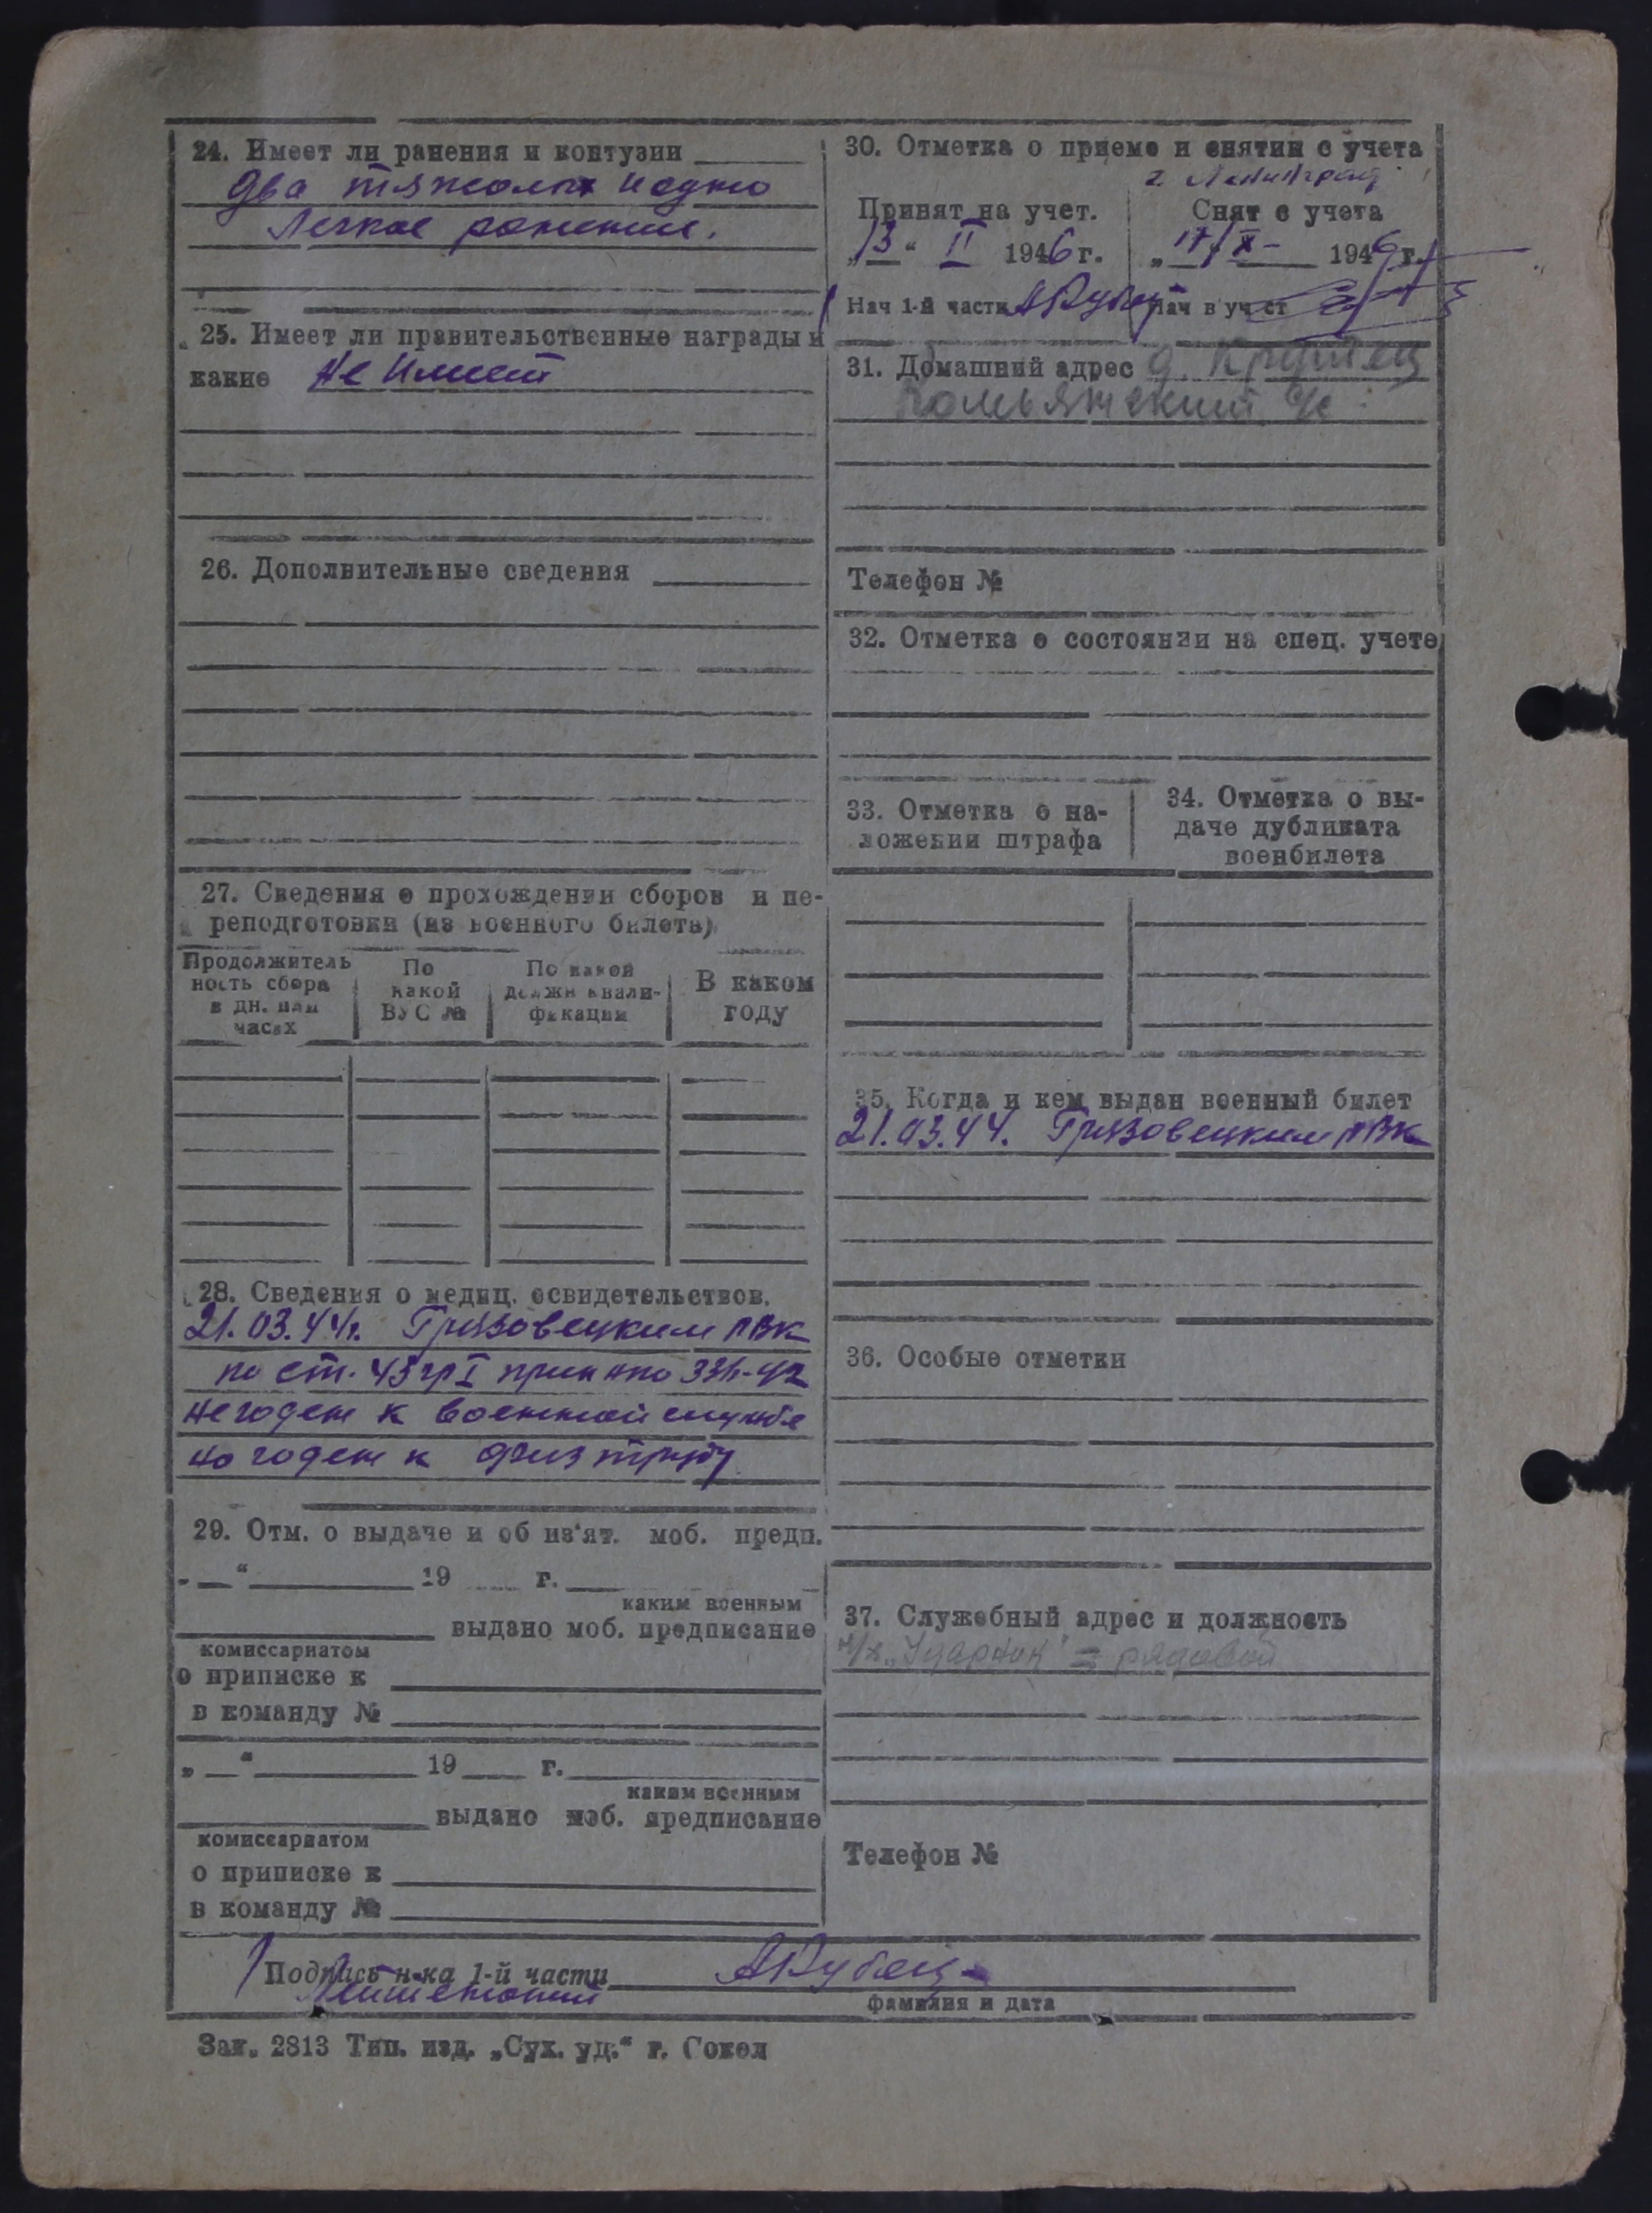 24. Имеет ли ранения и контузии
Два тяжолых и одно
Легкое ранение.
25. Имеет ли правительственные награды и
какие Не Имеет
26. Дополнительные сведения
27. Сведения о прохождении сборов и пе-
реподготовки (из военного билета)
Продолжитель
ность сбора
в дн. или
часах
По
какой
ВУС №
По какой
должн квали-
фикации
В каком
году
28. Сведения о медиц. освидетельствов.
21.03.44г. Грязовецким РВК
по ст. 43 гр I прик НКО 336-42
не годен к военной службе
но годен к физ труду
29. Отм. о выдаче и об из'ят. моб. предп.
„ “ 19 г.
каким военным
выдано моб. предписание
комиссариатом
о приписке к
в команду №
„ “ 19 г.
каким военным
выдано моб. предписание
комиссариатом
о приписке к
в команду №
30. Отметка о приеме и снятии с учета
г. Ленинград
Принят на учет.
„13“ II 1946 г.
Нач 1-й части
Снят с учета
„17“ X 1946 г.
Нач в уч ст
31. Домашний адрес д. Круглец
с/с
Телефон №
32. Отметка о состоянии на спец. учете
33. Отметка о на-
ложении штрафа
34. Отметка о вы-
даче дубликата
военбилета
35. Когда и кем выдан военный билет
21.03.44. Грязовецким РВК
36. Особые отметки
37. Служебный адрес и должность
к/х „Ударник" = рядовой
Телефон №
Подпись н-ка 1-й части
фамилия и дата
Зак. 2813 Тип. изд. „Сух. уд.“ г. Сокол